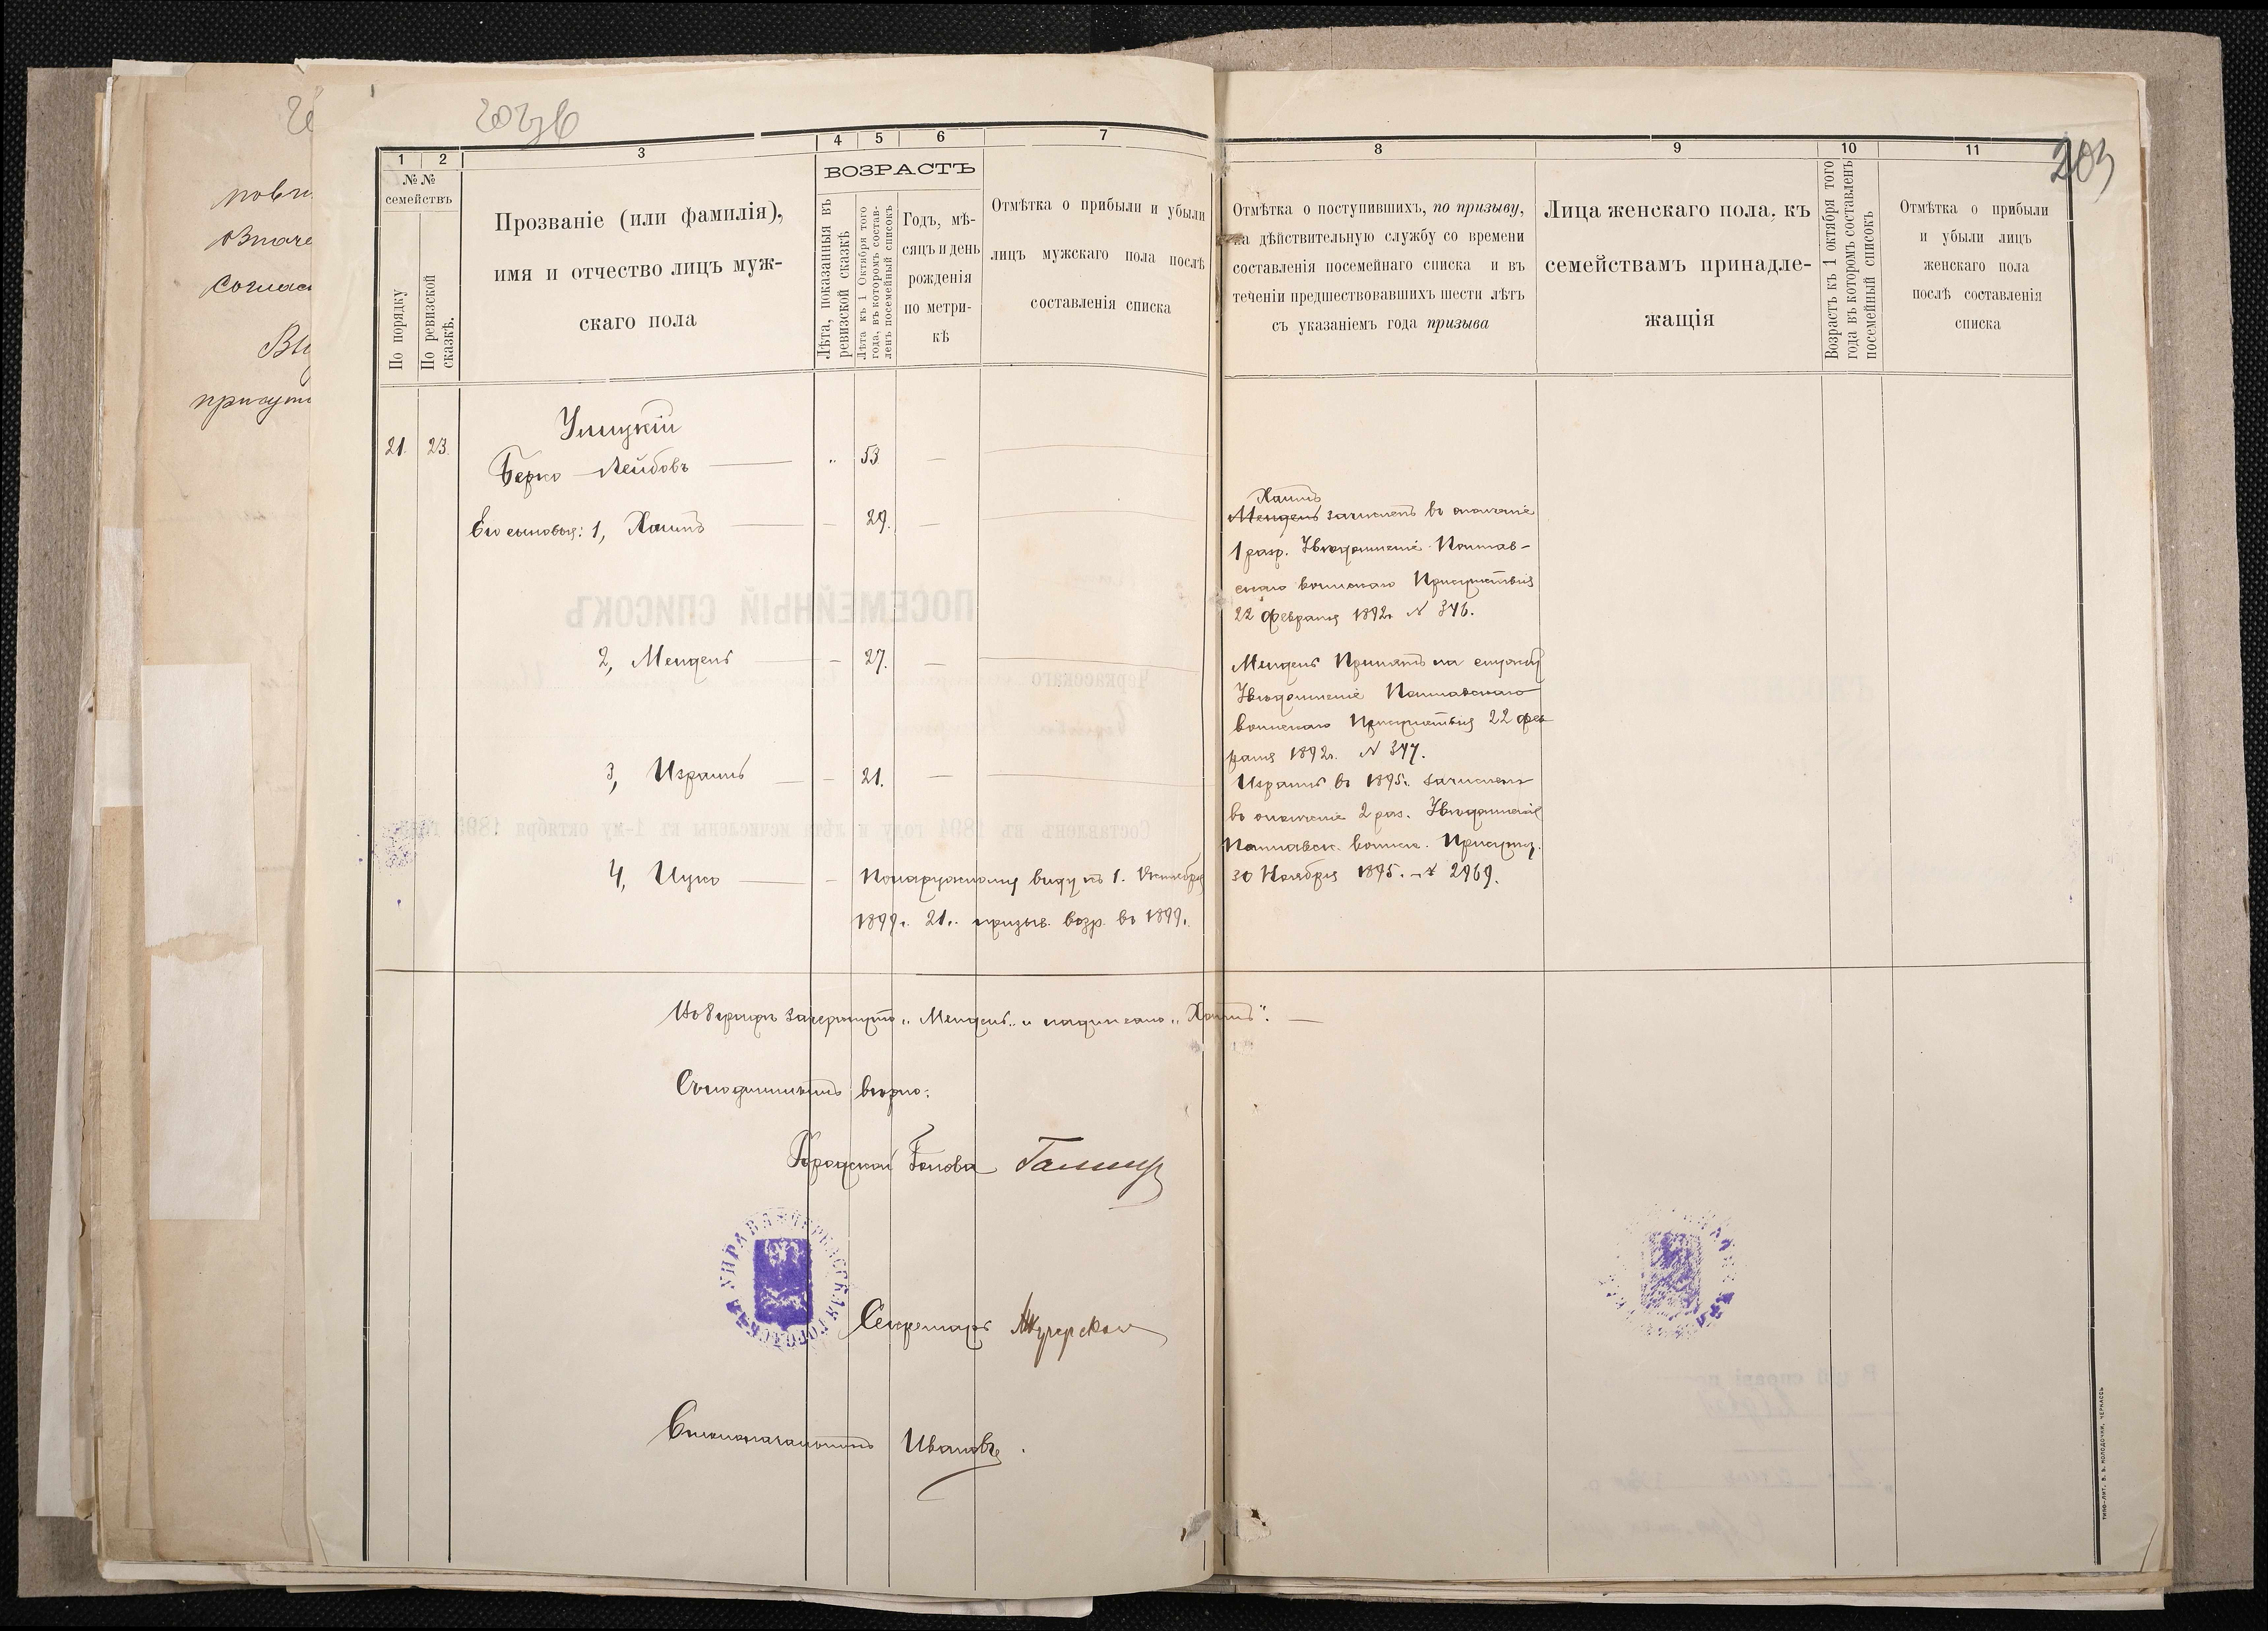 203
1 2 3 4 5 6 7 8 9 10 11
№№ семействъ
По порядку
По ревизской сказкѣ.
Прозваніе (или фамилія),
имя и отчество лицъ муж-
скаго пола
ВОЗРАСТЪ
Лѣта, показанныя въ
ревизской сказкѣ
Лѣта къ 1 Октября того
года, въ которомъ состав-
ленъ посемейный списокъ
Годъ, мѣ-
сяцъ и день
рожденія
по метри-
кѣ
Отмѣтка о прибыли и убыли
лицъ мужскаго пола послѣ
составленія списка
Отмѣтка о поступившихъ, по призыву,
на дѣйствительную службу со времени
составленія посемейнаго списка и въ
теченіи предшествовавшихъ шести лѣтъ
съ указаніемъ года призыва
Лица женскаго пола, къ
семействамъ принадле-
жащія
Возрастъ къ 1 октября того
года въ которомъ составленъ
посемейный списокъ
Отмѣтка о прибыли
и убыли лицъ
женскаго пола
послѣ составленія
списка
Улицкій
21. 23. Берко Лейбовъ 53
Его сыновья: 1, Хаимъ 29.
Хаимъ
Мендель зачисленъ въ ополченіе
1 разр. Увѣдомленіе Полтав-
скаго воинскаго Присутствія
22 февраля 1892г. № 346.
2, Мендель 27.
Мендель Принятъ на службу
Увѣдомленіе Полтавскаго
воинскаго Присутствія 22 фев
раля 1892г. № 347.
3, Израиль 21.
Израиль въ 1895г. зачисленъ
въ ополченіе 2 раз. Увѣдомленіе
Полтавск. воинск. Присутв.
30 Ноября 1895. № 2969.
4, Ицко По наружному виду къ 1. Октября
1899г. 21г. призыв. возр. въ 1899г.
Въ 8 графѣ зачеркнуто „Мендель" и надписано „Хаимъ".
Съ подлиннымъ вѣрно:
Городской Голова
ЧЕРКАССКАЯ ГОРОДСКАЯ УПРАВА
Секретарь
Столоначальникъ Ивановъ
ТИПО-ЛИТ. В. В. КОЛОДОЧКИ, ЧЕРКАССЫ
ПОСЕМЕЙНЫЙ СПИСОКЪ
Черкасскаго
Составленъ въ 1894 году и лѣта исчислены къ 1-му октября 1895 года